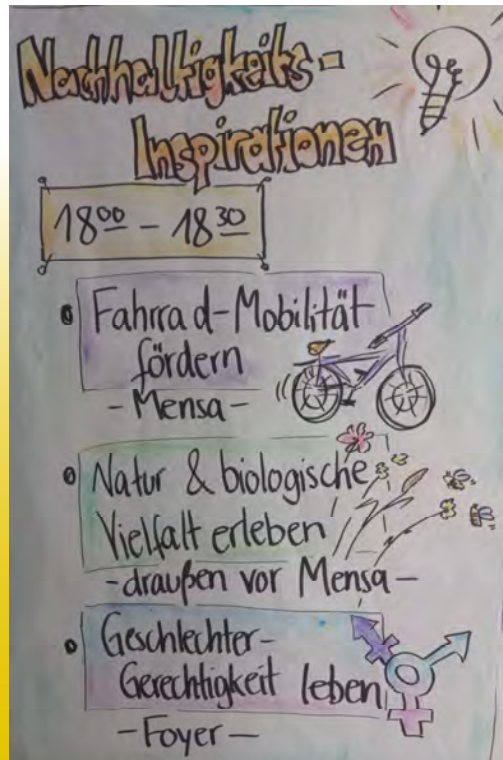 Nachhaltigkeits-
Inspirationen
18⁰⁰ – 18³⁰
• Fahrrad-Mobilität
fördern
- Mensa -
• Natur & biologische
Vielfalt erleben
- draußen vor Mensa -
• Geschlechter-
Gerechtigkeit leben
- Foyer -